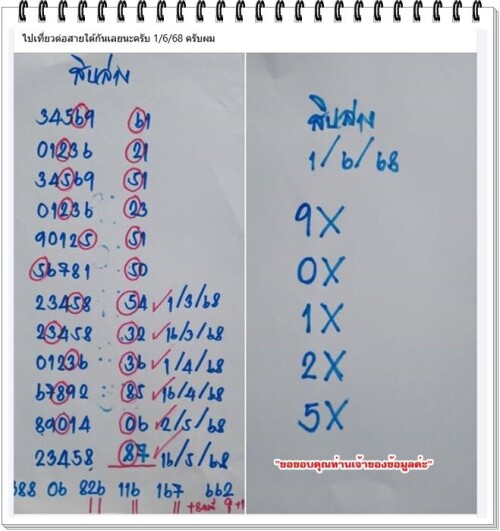 ไปเที่ยวต่อสายใต้กันเลยนะครับ 1/6/68 ครับผม
สิบล่าง
34569 61
01236 21
34569 51
01236 23
90125 51
56781 50
23458 54 ✓ 1/3/68
23458 32 ✓ 16/3/68
01236 36 ✓ 1/4/68
67892 85 ✓ 16/4/68
89014 06 ✓ 2/5/68
23458 87 ✓ 16/5/68
688 06 826 116 167 662
สิบล่าง
1/6/68
9X
0X
1X
2X
5X
"ขอขอบคุณท่านเจ้าของข้อมูลค่ะ"